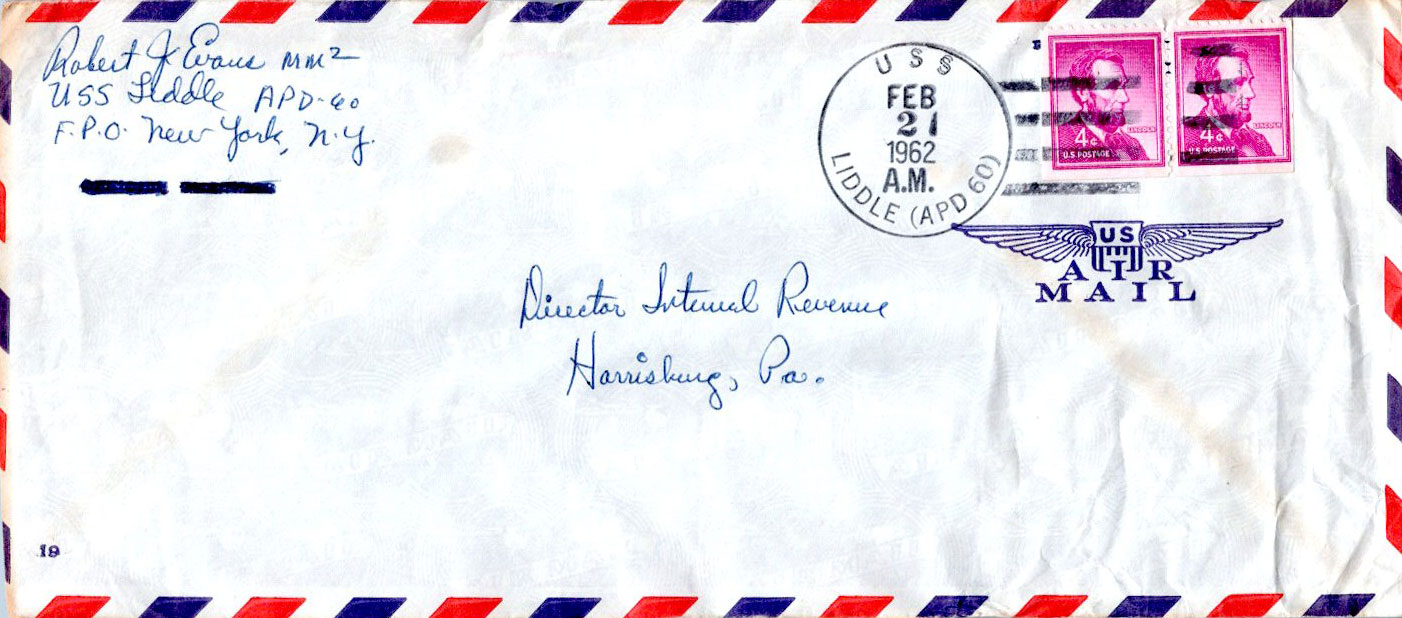 Robert J. Evans MM2
USS Liddle APD-60
F.P.O. New York, N.Y.
USS
FEB
21
1962
A.M.
LIDDLE (APD 60)
4¢
LINCOLN
U.S. POSTAGE
4¢
LINCOLN
U.S. POSTAGE
US
AIR
MAIL
Director Internal Revenue
Harrisburg, Pa.
19